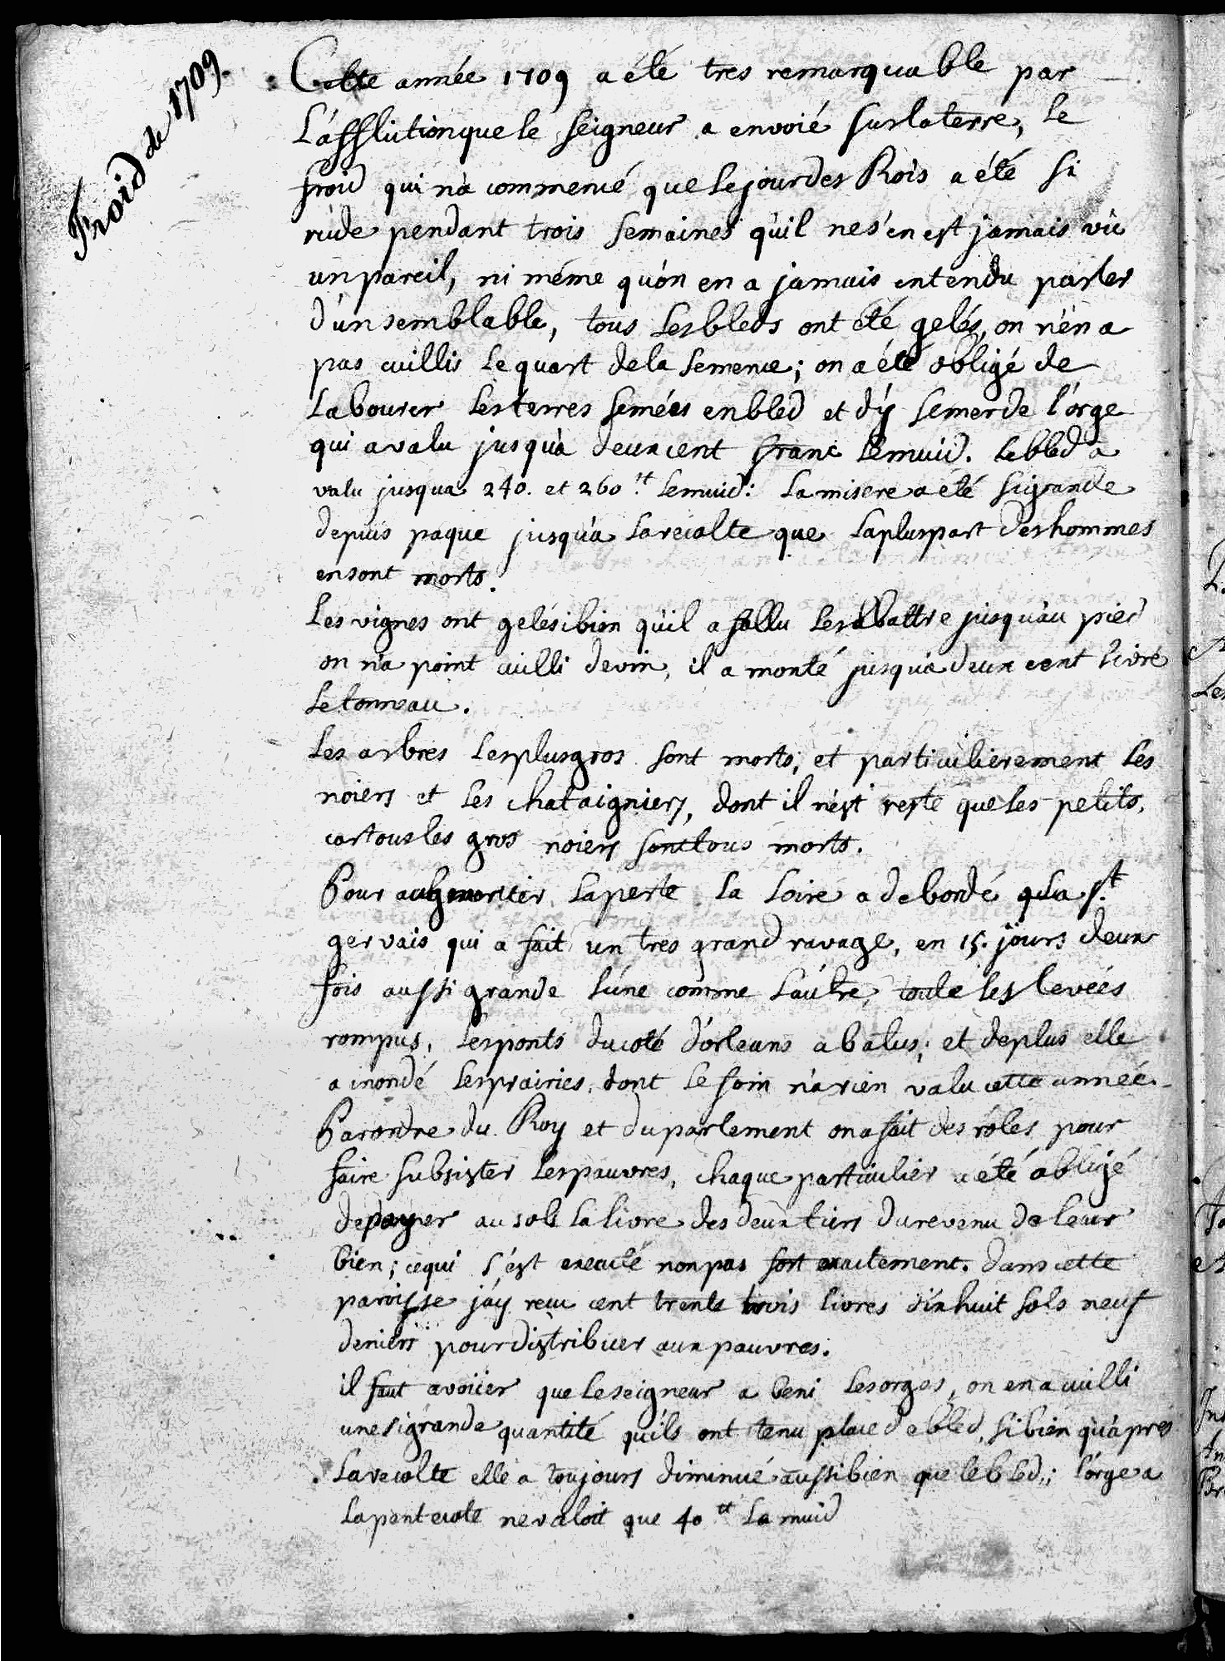 Froid de 1709.
Cette année 1709 a été tres remarquable par
L'afflictionque le seigneur a envoié surlaterre, le
froid qui n'a commencé que lejourdes Rois a été si
rude pendant trois semaines qu'il nes'en est jamais vû
unpareil, ni méme qu'on en a jamais entendu parler
d'un semblable, tous lesbleds ont été gelés, on n'en a
pas cuillis le quart dela semence; on a été obligé de
Labourer les terres semées enbled et d'y semerde l'orge
qui avalu jusqu'à deuxcent franc lemuid. lebled a
valu jusqua 240. et 260.tt lemuid: lamisere a été sigrande
depuis paque jusqu'a larecolte que lapluspart deshommes
ensont morts.
Les vignes ont gelésibien qu'il a fallu lesabattre jusqu'au pied
on n'a point cuilli devin, il a monté jusqu'a deux cent livre
le tonneau.
Les arbres lesplusgros sont morts, et particulierement les
noiers et les chataigniers, dont il n'est resté que les petits,
cartousles gros noiers sonttous morts.
Pour augmenter laperte la Loire a debordé a la st.
gervais qui a fait un tres grand ravage, en 15. jours deux
fois aussi grande l'une comme l'autre, toute les levées
rompus, lesponts ducoté d'orleans abatus, et deplus elle
a inondé lesprairies, dont le foin n'a rien valu cette année.
Parordre du Roy et duparlement on a fait des rôles pour
faire subsister lespauvres, chaque particulier a été obligé
depayer au sols la livre des deux tiers durevenu de leur
bien; cequi s'est executé nonpas fort exactement. dans cette
paroisse j'ay recu cent trente trois livres dix huit sols neuf
deniers pour distribuer aux pauvres.
il faut avoüer que leseigneur a beni lesorges, on en a cuilli
une sigrande quantité qu'ils ont tenu place de bled, sibien qu'apres
La recolte elle a toujours diminué aussibien que lebled; l'orge a
la pentecote nevaloit que 40tt la muid